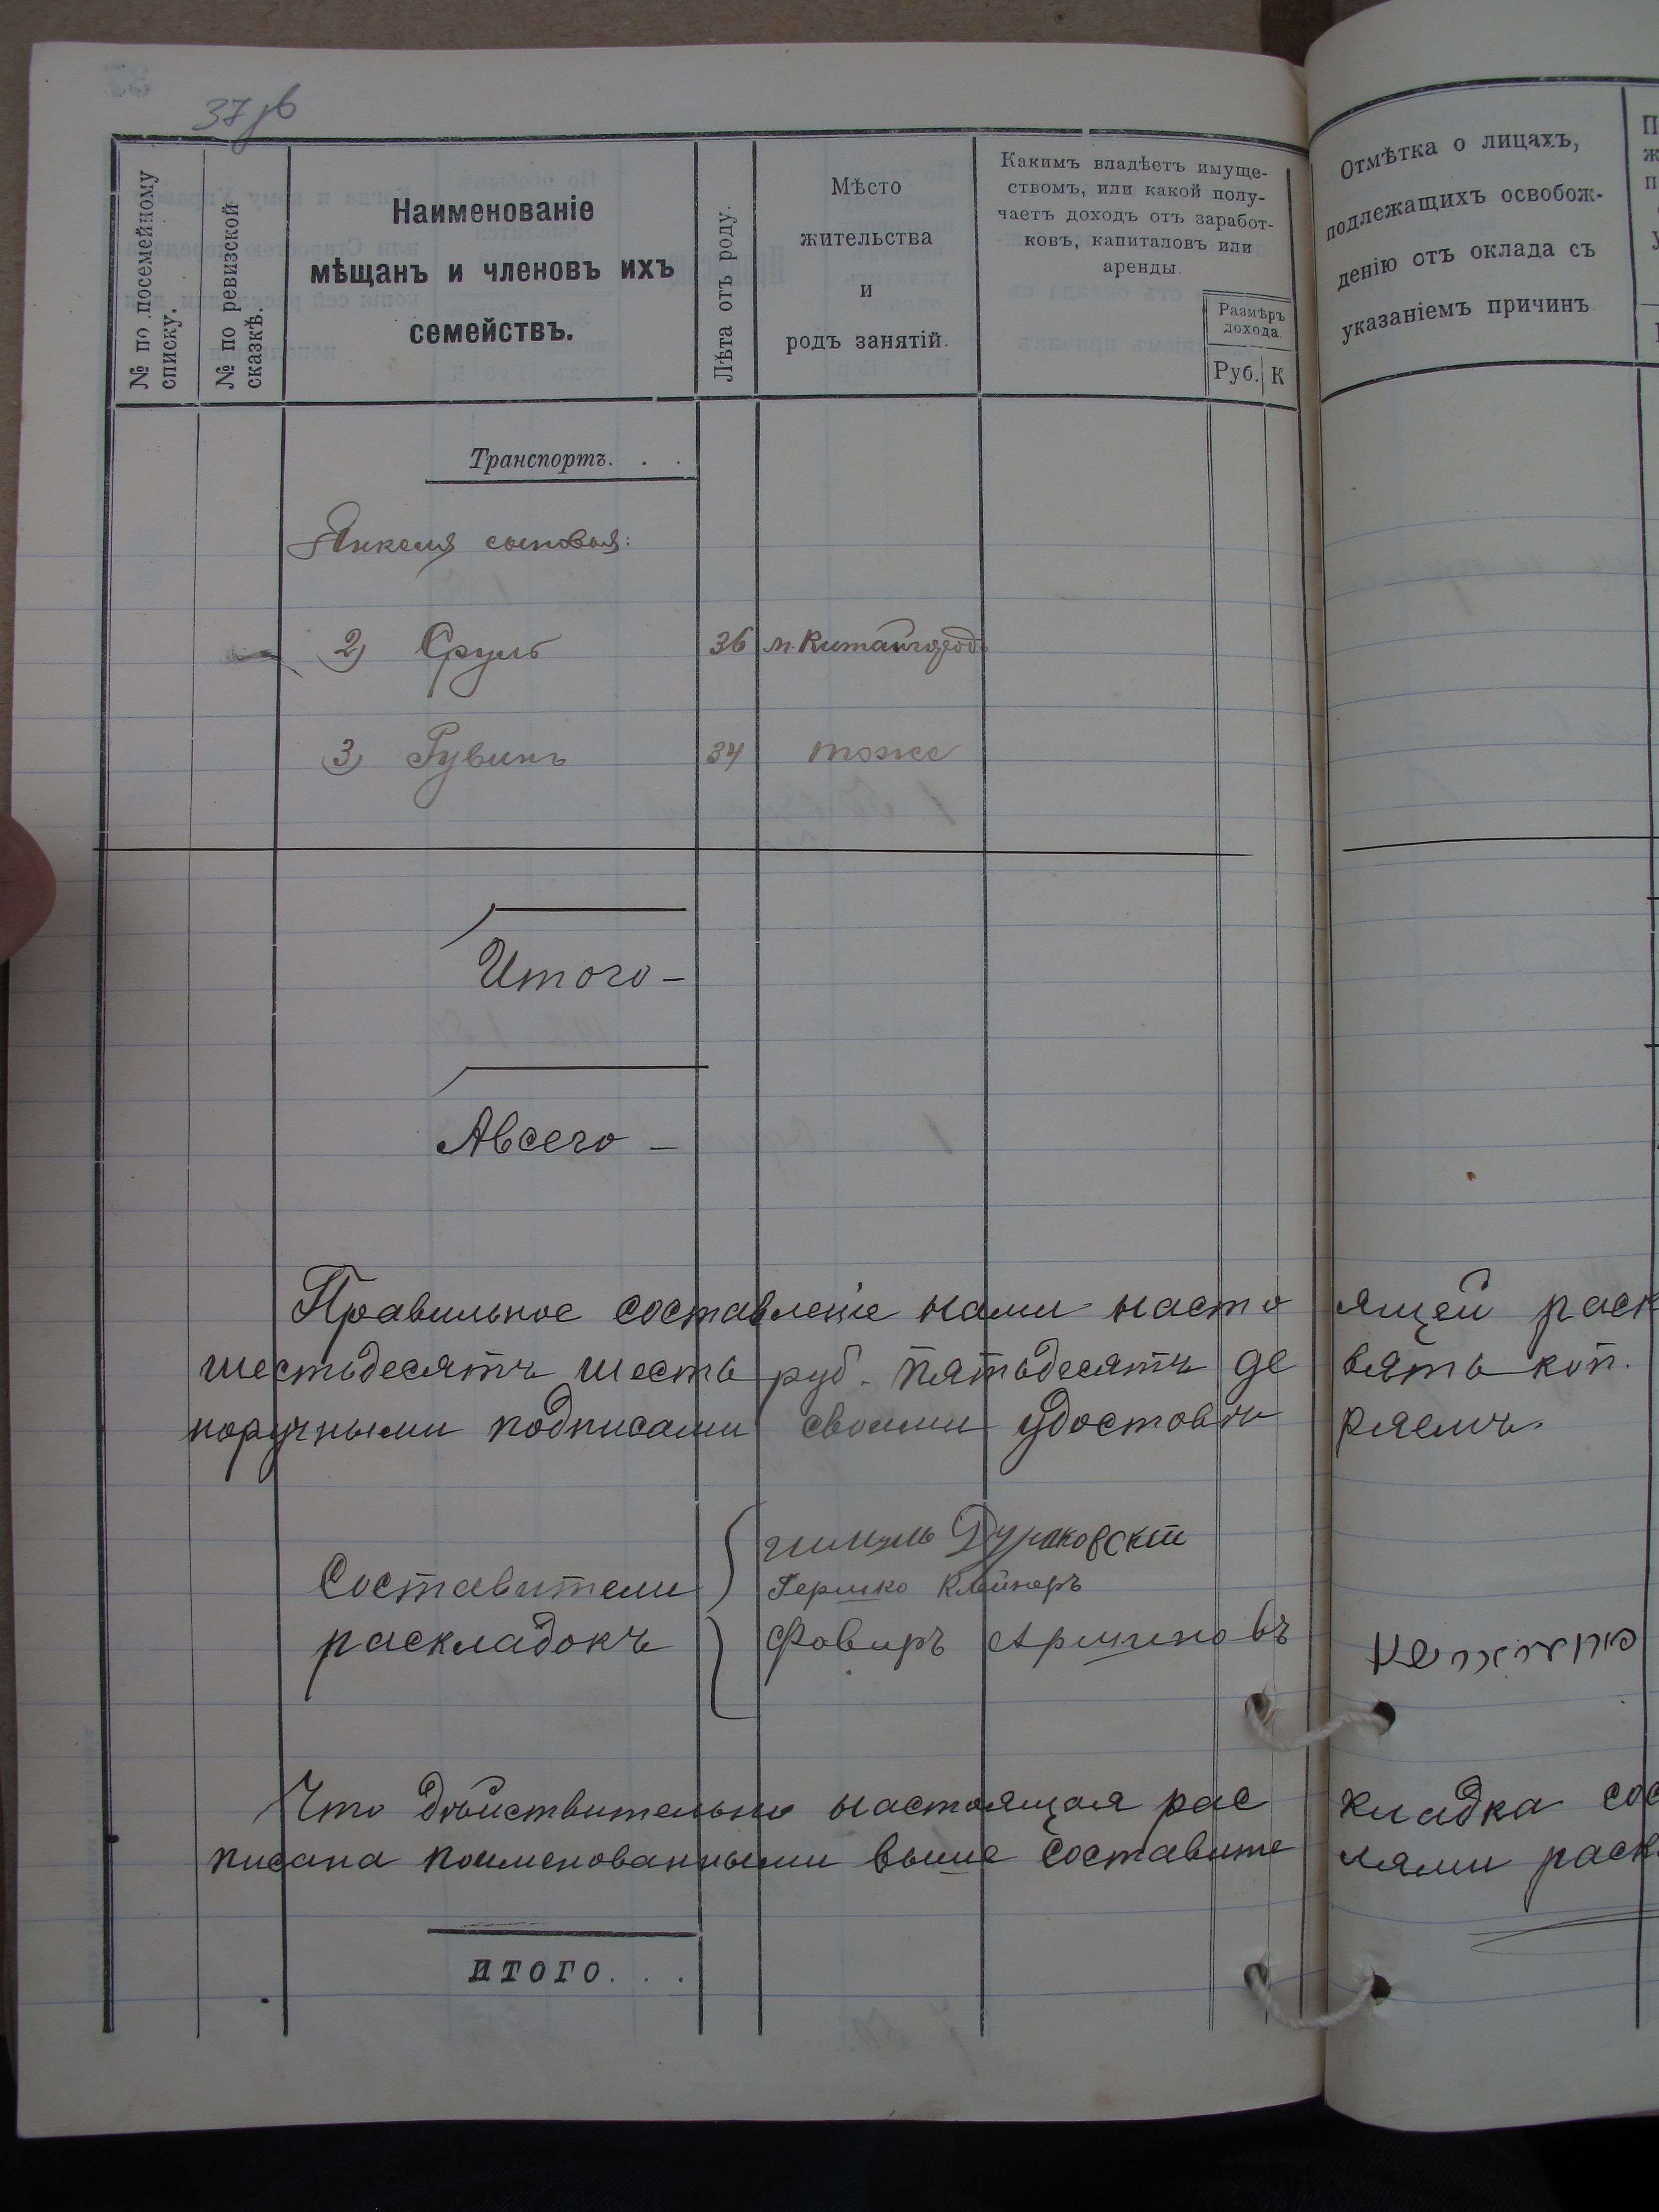 37 об
№ по посемейному списку.
№ по ревизской сказкѣ.
Наименованіе
мѣщанъ и членовъ ихъ
семействъ.
Лѣта отъ роду.
Мѣсто
жительства
и
родъ занятій.
Какимъ владѣетъ имуще-
ствомъ, или какой полу-
чаетъ доходъ отъ заработ-
ковъ, капиталовъ или
аренды.
Размѣръ
дохода.
Руб. К
Отмѣтка о лицахъ,
подлежащихъ освобож-
денію отъ оклада съ
указаніемъ причинъ
Транспортъ. . .
Янкеля сыновья:
2) Сруль 36 м. Китайгород
3) Рувинъ 34 тоже
Итого —
А всего —
Правильное составленіе нами насто ящей раск
шестьдесятъ шесть руб. пятьдесятъ де вять коп.
норучными подписами своими удостовѣ ряемъ.
Составители
раскладокъ
Гершко Клейнеръ
Что дѣйствительно настоящая рас кладка сос
писана поименованными выше составите лями раск
ИТОГО. . .